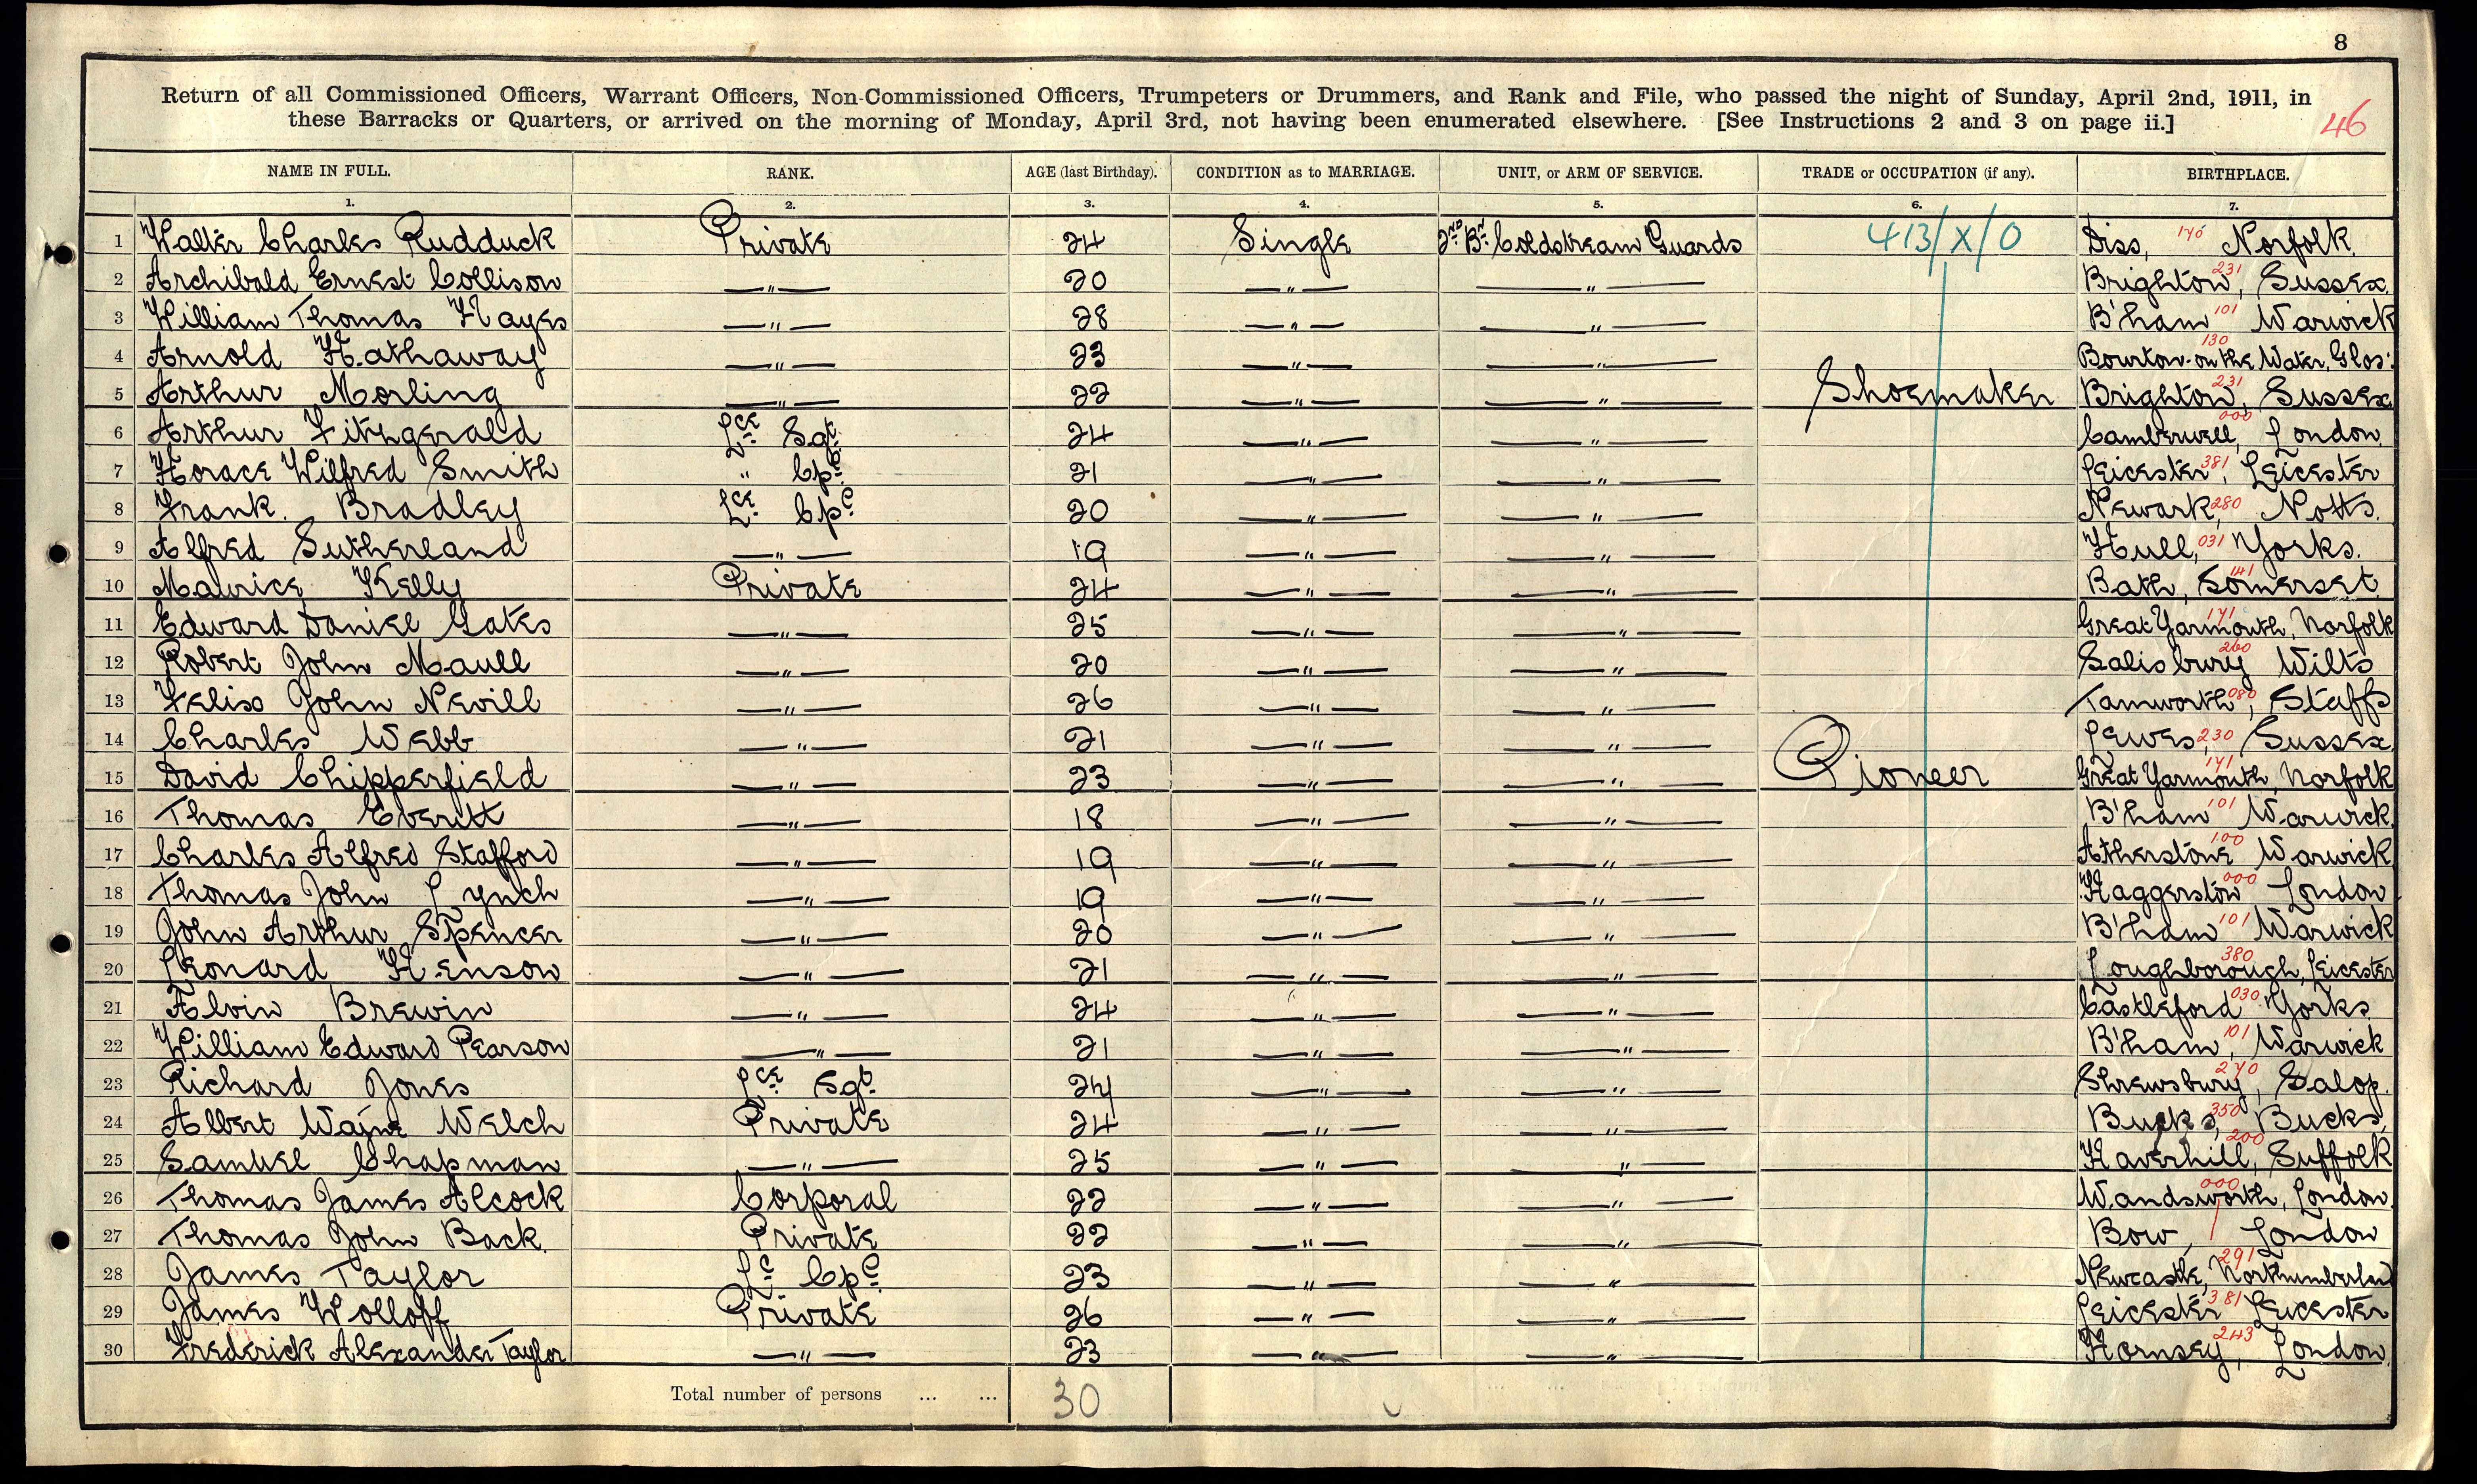 8
Return of all Commissioned Officers, Warrant Officers, Non-Commissioned Officers, Trumpeters or Drummers, and Rank and File, who passed the night of Sunday, April 2nd, 1911, in
these Barracks or Quarters, or arrived on the morning of Monday, April 3rd, not having been enumerated elsewhere. [See Instructions 2 and 3 on page ii.]
46
NAME IN FULL. RANK. AGE (last Birthday). CONDITION as to MARRIAGE. UNIT, or ARM OF SERVICE. TRADE or OCCUPATION (if any). BIRTHPLACE.
1. 2. 3. 4. 5. 6. 7.
1 Walter Charles Rudduck Private 24 Single 2nd Bn. Coldstream Guards 413/X/0 Diss, 170 Norfolk.
2 Archibald Ernest Collison —"— 20 —"— —"— Brighton, 231 Sussex.
3 William Thomas Hayes —"— 28 —"— —"— B'ham 101 Warwick
4 Arnold Hathaway —"— 23 —"— —"— Bourton-on the Water, Glos: 130
5 Arthur Morling —"— 22 —"— —"— Shoemaker Brighton, 231 Sussex
6 Arthur Fitzgerald Lce Sgt 24 —"— —"— Camberwell, 000 London.
7 Horace Wilfred Smith " Cpl 21 —"— —"— Leicester, 381 Leicester
8 Frank. Bradley Lce Cpl 20 —"— —"— Newark, 280 Notts.
9 Alfred Sutherland —"— 19 —"— —"— Hull, 031 Yorks.
10 Maurice Kelly Private 24 —"— —"— Bath, 141 Somerset.
11 Edward Daniel Gates —"— 25 —"— —"— Great Yarmouth, 171 Norfolk
12 Robert John Maull —"— 20 —"— —"— Salisbury 260 Wilts
13 Felix John Nevill —"— 26 —"— —"— Tamworth, 080 Staffs
14 Charles Webb —"— 21 —"— —"— Lewes, 230 Sussex.
15 David Chipperfield —"— 23 —"— —"— Pioneer Great Yarmouth, 171 Norfolk
16 Thomas Everitt —"— 18 —"— —"— B'ham 101 Warwick.
17 Charles Alfred Stafford —"— 19 —"— —"— Atherstone 100 Warwick
18 Thomas John Lynch —"— 19 —"— —"— Haggerston 000 London
19 John Arthur Spencer —"— 20 —"— —"— B'ham 101 Warwick
20 Leonard Henson —"— 21 —"— —"— Loughborough, 380 Leicester
21 Alvin Brewin —"— 24 —"— —"— Castleford 030 Yorks.
22 William Edward Pearson —"— 21 —"— —"— B'ham, 101 Warwick
23 Richard Jones Lce Sgt. 24 —"— —"— Shrewsbury, 270 Salop.
24 Albert Wayne Welch Private 24 —"— —"— Bucks, 350 Bucks,
25 Samuel Chapman —"— 25 —"— —"— Haverhill, 200 Suffolk
26 Thomas James Alcock Corporal 22 —"— —"— Wandsworth, 000 London.
27 Thomas John Back. Private 22 —"— —"— Bow, London
28 James Taylor Lc Cpl 23 —"— —"— Newcastle, 291 Northumberland
29 James Wolloff Private 26 —"— —"— Leicester 381 Leicester
30 Frederick Alexander Taylor —"— 23 —"— —"— Hornsey, 243 London.
Total number of persons ... ... 30